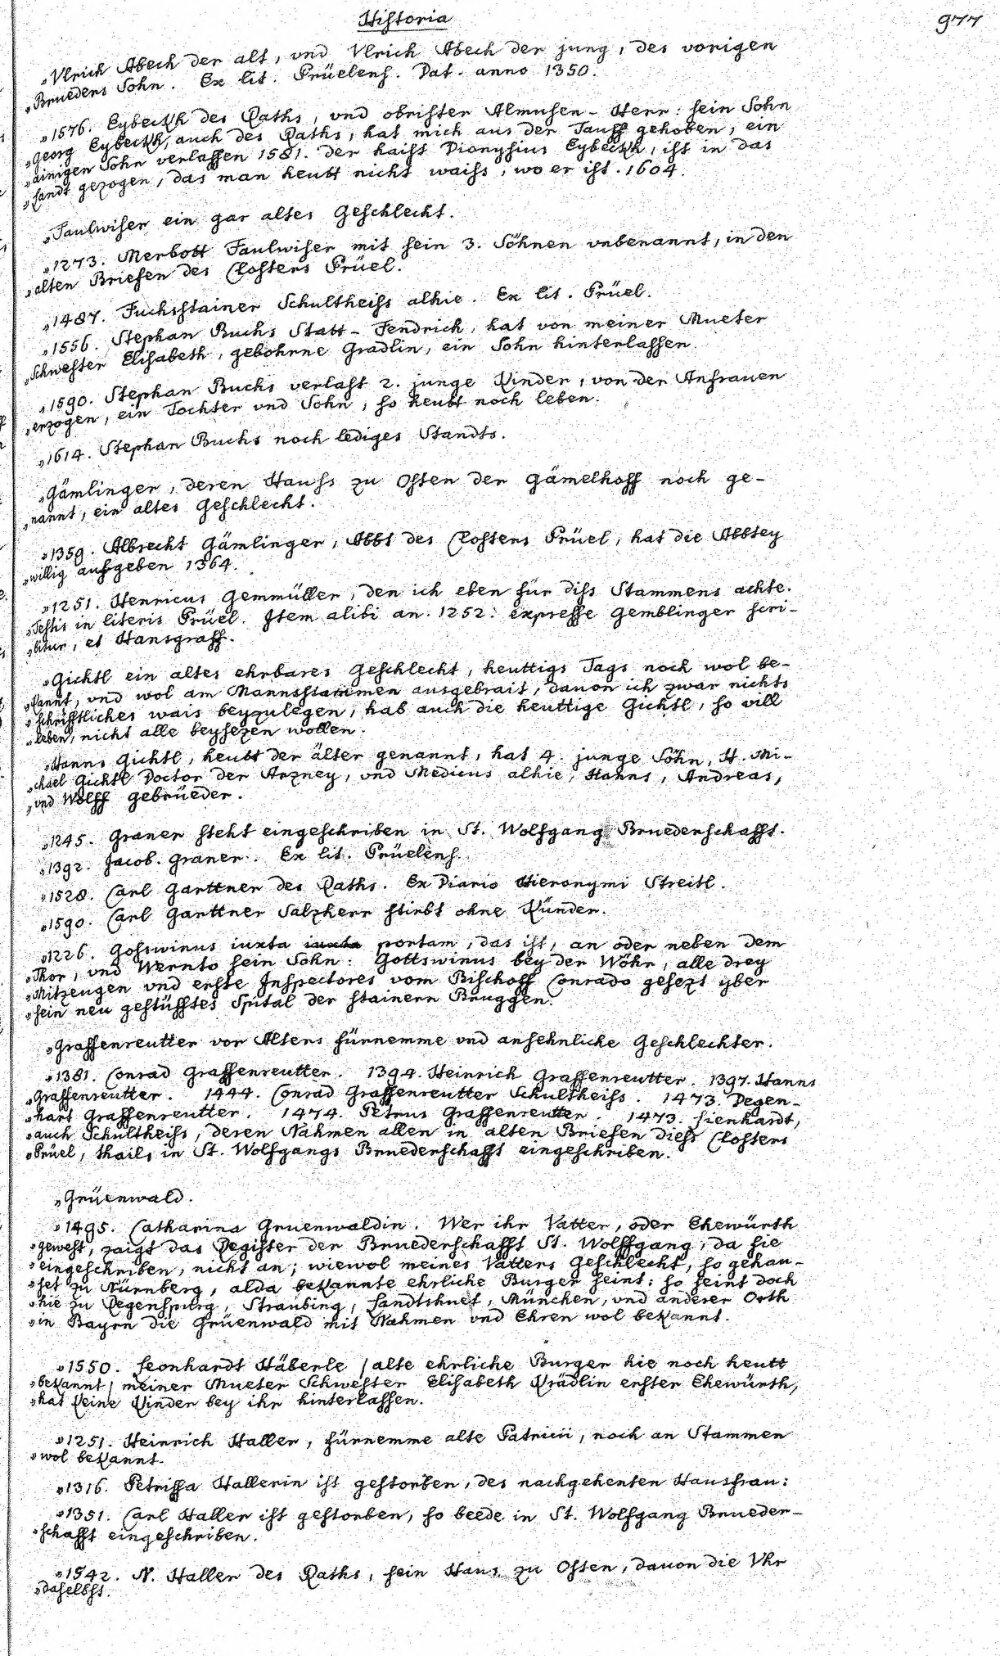 Historia
977
„Vlrich Abech der alt, vnd Vlrich Abech der jung, des vorigen
„Bruedens Sohn. Ex lit. Prüelens. Dat. anno 1350.
„1576. Eybeckh des Raths, vnd obrister Almusen-Herr: sein Sohn
„Georg Eybeckh, auch des Raths, hat mich aus der Tauff gehoben, ein
„ainigen Sohn verlassen 1581. der haist Dionysius Eybeckh, ist in das
„Landt gezogen, das man heutt nicht waiss, wo er ist. 1604.
„Faulwiser ein gar altes Geschlecht.
„1273. Merbott Faulwiser mit sein 3. Söhnen vnbenannt, in den
„alten Briefen des Closters Prüel.
„1487. Fuchsstainer Schultheiss alhie. Ex lit. Prüel.
„1556. Stephan Buchs Statt-Fendrich, hat von meiner Mueter
„Schwester Elisabeth, gebohrne Gradlin, ein Sohn hinterlassen.
„1590. Stephan Buchs verlast 2. junge Kinder, von der Anfrauen
„erzogen, ein Tochter vnd Sohn, so heutt noch leben.
„1614. Stephan Buchs noch lediges Standts.
„Gämlinger, deren Hauss zu Osten der Gämelhoff noch ge-
„nannt, ein altes Geschlecht.
„1359. Albrecht Gämlinger, Abbt des Closters Prüel, hat die Abbtey
„willig aufgeben 1364.
„1251. Henricus Gemmüller, den ich eben für diss Stammens achte.
„Testis in literis Prüel. Item alibi an. 1252: expresse Gemblinger scri-
„bitur, et Hansgraff.
„Gichtl ein altes ehrbares Geschlecht, heuttigs Tags noch wol be-
„kannt, vnd wol am Mannsstammen ausgebrait, dauon ich zwar nichts
„schrifftliches wais beyzulegen, hab auch die heuttige Gichtl, so vill
„leben, nicht alle beysezen wollen.
„Hanns Gichtl, heutt der älter genannt, hat 4. junge Söhn, H. Mi-
„chael Gichtl Doctor der Arzney, vnd Medicus alhie, Hanns, Andreas,
„vnd Wolff gebrüeder.
„1245. Graner steht eingeschriben in St. Wolfgang Bruederschafft.
„1392. Jacob. Graner. Ex lit. Prüelens.
„1528. Carl Garttner des Raths. Ex Diario Hieronymi Streitl.
„1590. Carl Garttner Salzherr stirbt ohne Künder.
„1226. Gosswinus iuxta iuxta portam, das ist, an oder neben dem
„Thor, vnd Wernto sein Sohn: Gottswinus bey der Wöhr, alle drey
„Mitzeugen vnd erste Inspectores vom Bischoff Conrado gesezt yber
„sein neu gestüfftes Spital der stainern Bruggen.
„Graffenreutter vor Altens fürnemme vnd ansehnliche Geschlechter.
„1381. Conrad Graffenreutter. 1394. Heinrich Graffenreutter. 1397. Hanns
„Graffenreutter. 1444. Conrad Graffenreutter Schultheiss. 1473. Degen-
„hart Graffenreutter. 1474. Petrus Graffenreutter. 1473. Lienhardt,
„auch Schultheiss, deren Nahmen allen in alten Briefen diess Closters
„Prüel, thails in St. Wolfgangs Bruederschafft eingeschriben.
„Grüenwald.
„1495. Catharina Gruenwaldin. Wer ihr Vatter, oder Ehewürth
„gewest, zaigt das Register der Bruederschafft St. Wolffgang, da sie
„eingeschriben, nicht an; wiewol meines Vatters Geschlecht, so gehau-
„set zu Nürnberg, alda bekannte ehrliche Burger seint: so seint doch
„hie zu Regenspurg, Straubing, Landtshuet, München, vnd anderer Orth
„in Bayrn die Grüenwald mit Nahmen vnd Ehren wol bekannt.
„1550. Leonhardt Häberle / alte ehrliche Burger hie noch heutt
„bekannt / meiner Mueter Schwester Elisabeth Krädlin erster Ehewürth,
„hat keine Kinder bey ihr hinterlassen.
„1251. Heinrich Haller, fürnemme alte Patricii, noch an Stammen
„wol bekannt.
„1316. Petrissa Hallerin ist gestorben, des nachgehenten Hausfrau:
„1351. Carl Haller ist gestorben, so beede in St. Wolfgang Brueder-
„schafft eingeschriben.
„1542. N. Haller des Raths, sein Haus zu Osten, dauon die Vhr
„daselbst.